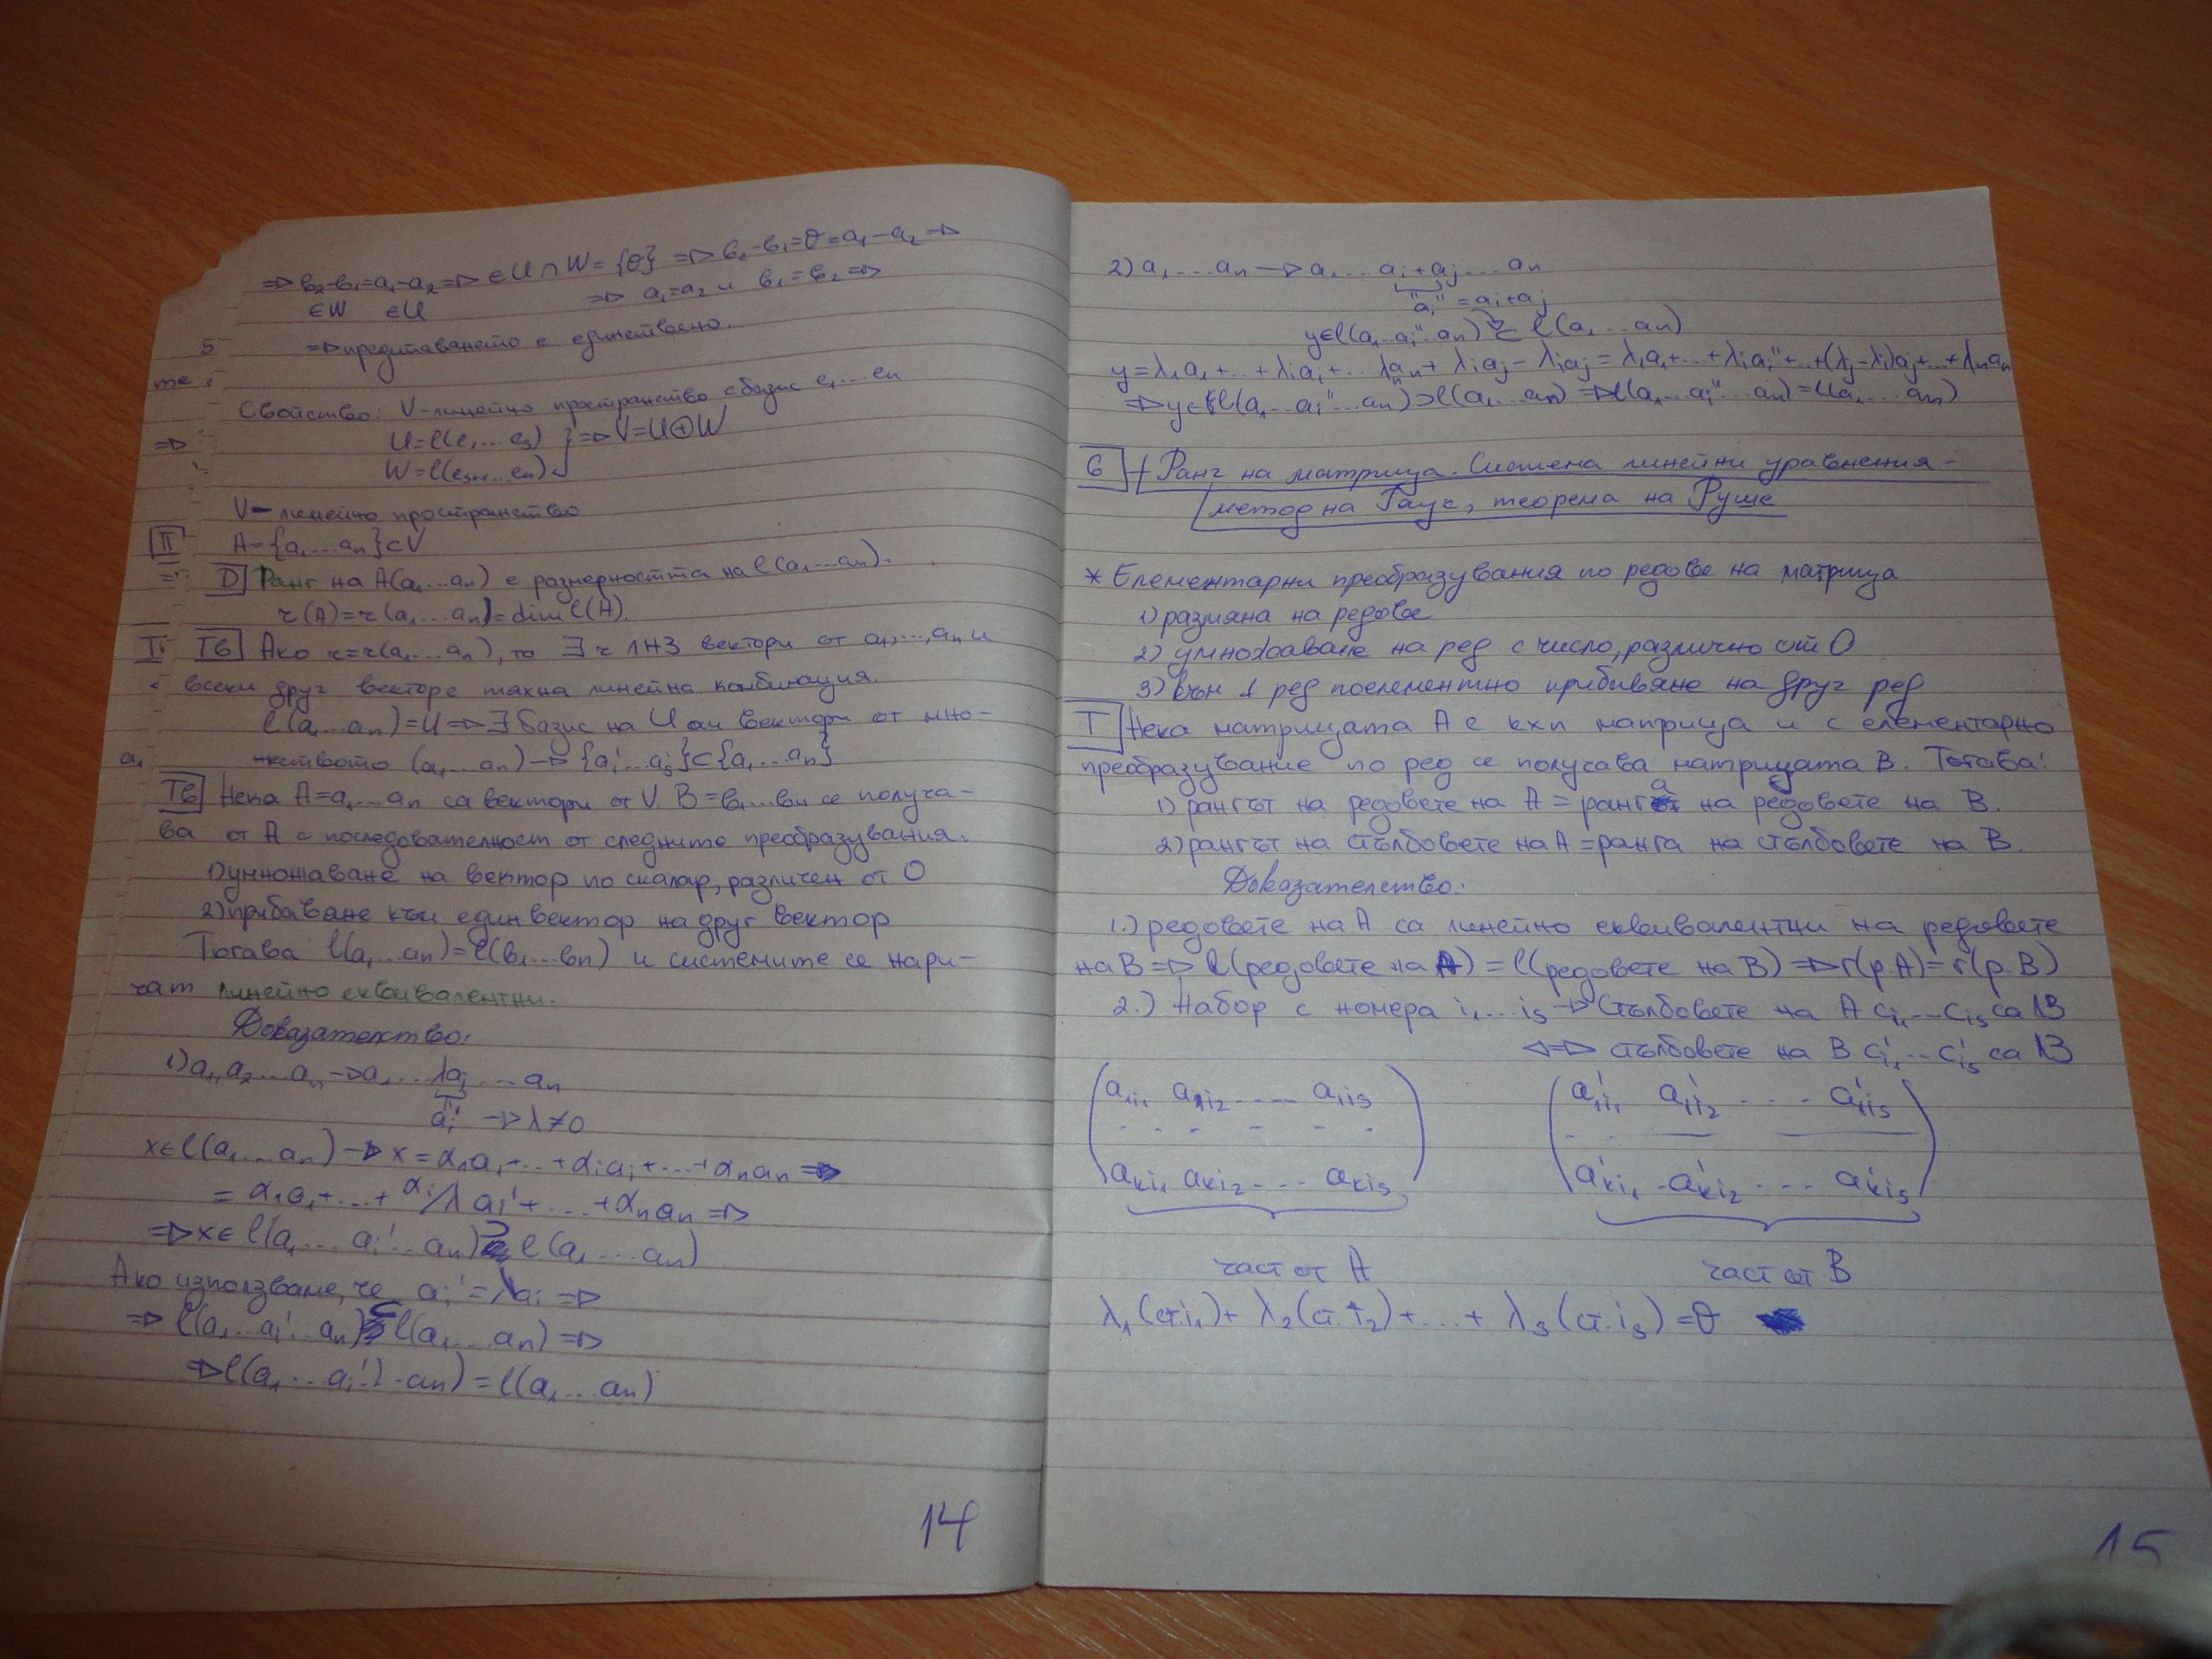 ⇒ b₂-b₁=a₁-a₂ ⇒ ∈ U∩W={θ} ⇒ b₂-b₁=θ=a₁-a₂ ⇒
∈W ∈U ⇒ a₁=a₂ и b₁=b₂ ⇒
⇒ представянето е единствено.
Свойство: V-линейно пространство с базис e₁...en
U=l(e₁...es) } ⇒ V=U⊕W
W=l(es+1...en)
V-линейно пространство
A={a₁...an}⊂V
D Ранг на A(a₁...an) е размерността на l(a₁...an).
r(A)=r(a₁...an)=dim l(A).
Тв Ако r=r(a₁...an), то ∃ r ЛНЗ вектори от a₁,...,an и
всеки друг векторе тяхна линейна комбинация.
l(a₁...an)=U ⇒ ∃ базис на U от вектори от мно-
жеството (a₁...an) → {a₁'...as'}⊂{a₁...an}
Тв Нека A=a₁...an са вектори от V. B=b₁...bn се получа-
ва от A с последователност от следните преобразувания:
1) умножаване на вектор по скалар, различен от 0
2) прибавяне към един вектор на друг вектор
Тогава l(a₁...an)=l(b₁...bn) и системите се нари-
чат линейно еквивалентни.
Доказателство:
1) a₁,a₂...an → a₁...λai...an
ai' → λ≠0
x∈l(a₁...an) → x=α₁a₁+...+αiai+...+αnan ⇒
= α₁a₁+...+αi/λ ai'+...+αnan ⇒
⇒ x∈ l(a₁...ai'...an) ⊇ l(a₁...an)
Ако използваме, че ai'=λai ⇒
⇒ l(a₁...ai'...an) ⊆ l(a₁...an) ⇒
⇒ l(a₁...ai'...an)=l(a₁...an)
14
2) a₁...an → a₁...ai+aj...an
ai''=ai+aj
y∈l(a₁...ai''...an) ⊇ l(a₁...an)
y=λ₁a₁+...+λiai+...λnan+λiaj-λiaj=λ₁a₁+...+λiai''+...+(λj-λi)aj+...+λnan
⇒ y∈l(a₁...ai''...an)⊃l(a₁...an) ⇒ l(a₁...ai''...an)=l(a₁...an)
6 Ранг на матрица. Система линейни уравнения -
метод на Гаус, теорема на Руше
* Елементарни преобразувания по редове на матрица
1) размяна на редове
2) умножаване на ред с число, различно от 0
3) към 1 ред поелементно прибавяне на друг ред
Т Нека матрицата A е kxn матрица и с елементарно
преобразувание по ред се получава матрицата B. Тогава:
1) рангът на редовете на A = ранга на редовете на B.
2) рангът на стълбовете на A = ранга на стълбовете на B.
Доказателство:
1.) редовете на A са линейно еквивалентни на редовете
на B ⇒ l(редовете на A) = l(редовете на B) ⇒ r(р.A)=r(р.B)
2.) Набор с номера i₁...is → Стълбовете на A ci₁...cis са ЛЗ
⇔ стълбовете на B ci₁'...cis' са ЛЗ
a1i₁ a1i₂ .... a1is a1i₁' a1i₂' ... a1is'
aki₁ aki₂ ... akis aki₁' aki₂' ... akis'
част от A част от B
λ₁(ст.i₁)+λ₂(ст.i₂)+...+λs(ст.is)=θ
15